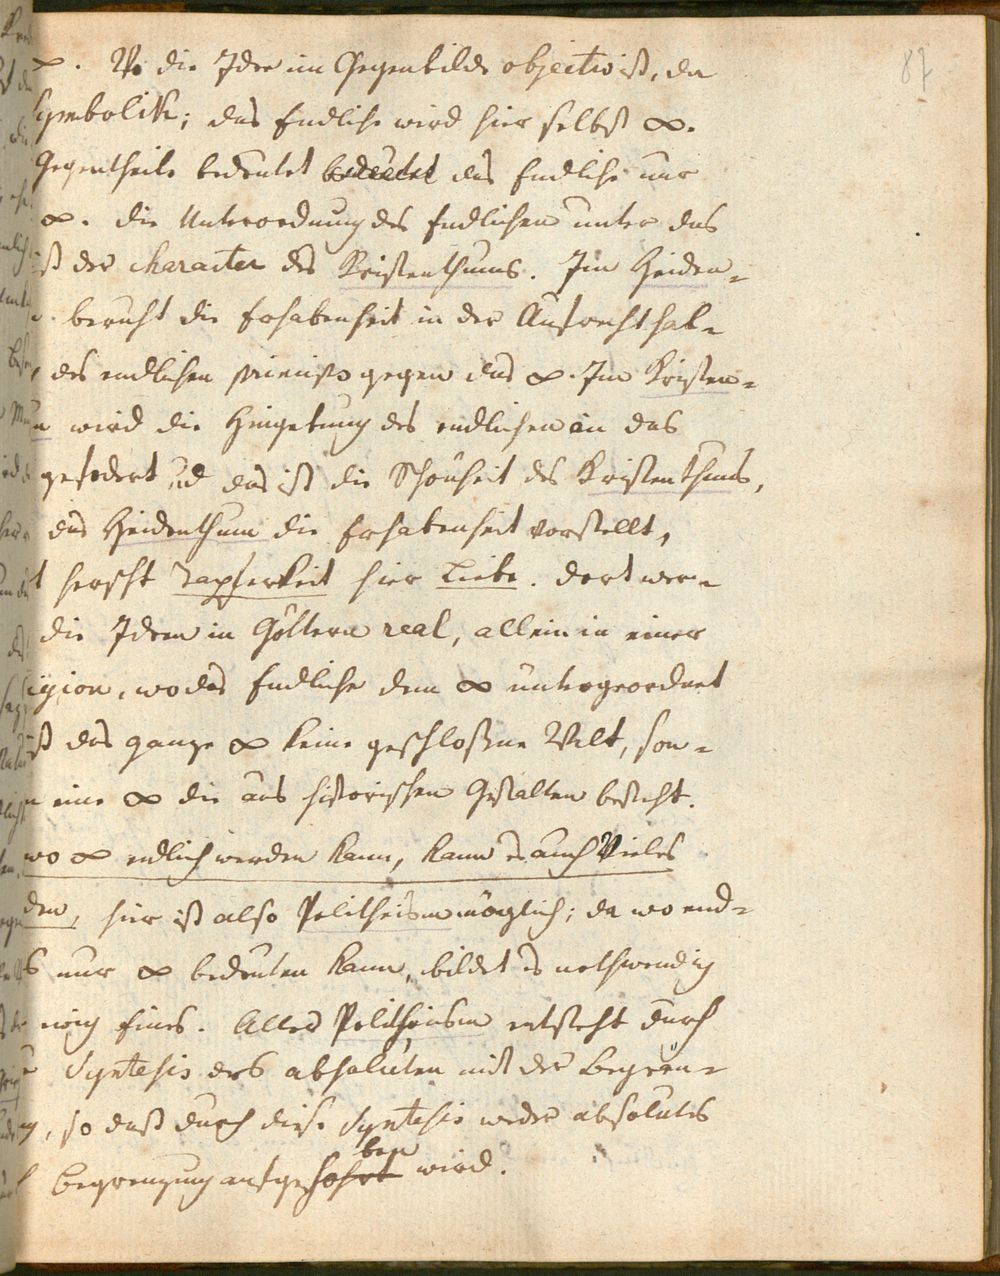 87
∞. Wo die Idee im Gegenbilde objectiv ist, da
Symbolik; das Endliche wird hier selbst ∞.
Gegentheile bedeutet bedeutet das Endliche nur
∞. die Unterordnung des Endlichen unter das
ist der character des Kristenthums. Im Heiden-
beruht die Erhabenheit in der Aufrechthal-
des endlichen gegen das ∞. Im Kristen-
wird die Hingebung des endlichen an das
gefodert und das ist die Schönheit des Kristenthums,
das Heidenthum die Erhabenheit vorstellt,
herscht Tapferkeit hier Liebe. dort wer-
die Ideen in Göttern real, allein in einer
igion, wo das Endliche dem ∞ untergeordnet
ist das ganze ∞ keine geschloßene Welt, son-
n eine ∞ die aus historischen Gestalten besteht.
wo ∞ endlich werden kann, kann es auch Vieles
den, hier ist also Politheism möglich; da wo end-
s nur ∞ bedeuten kann, bildet es nothwendig
ewig Eines. Aller Politheism entsteht durch
Syntesis des absoluten mit der Begrän-
g, so daß durch diese Syntesis weder absolutes
ben
Begrenzung aufgehohrt wird.